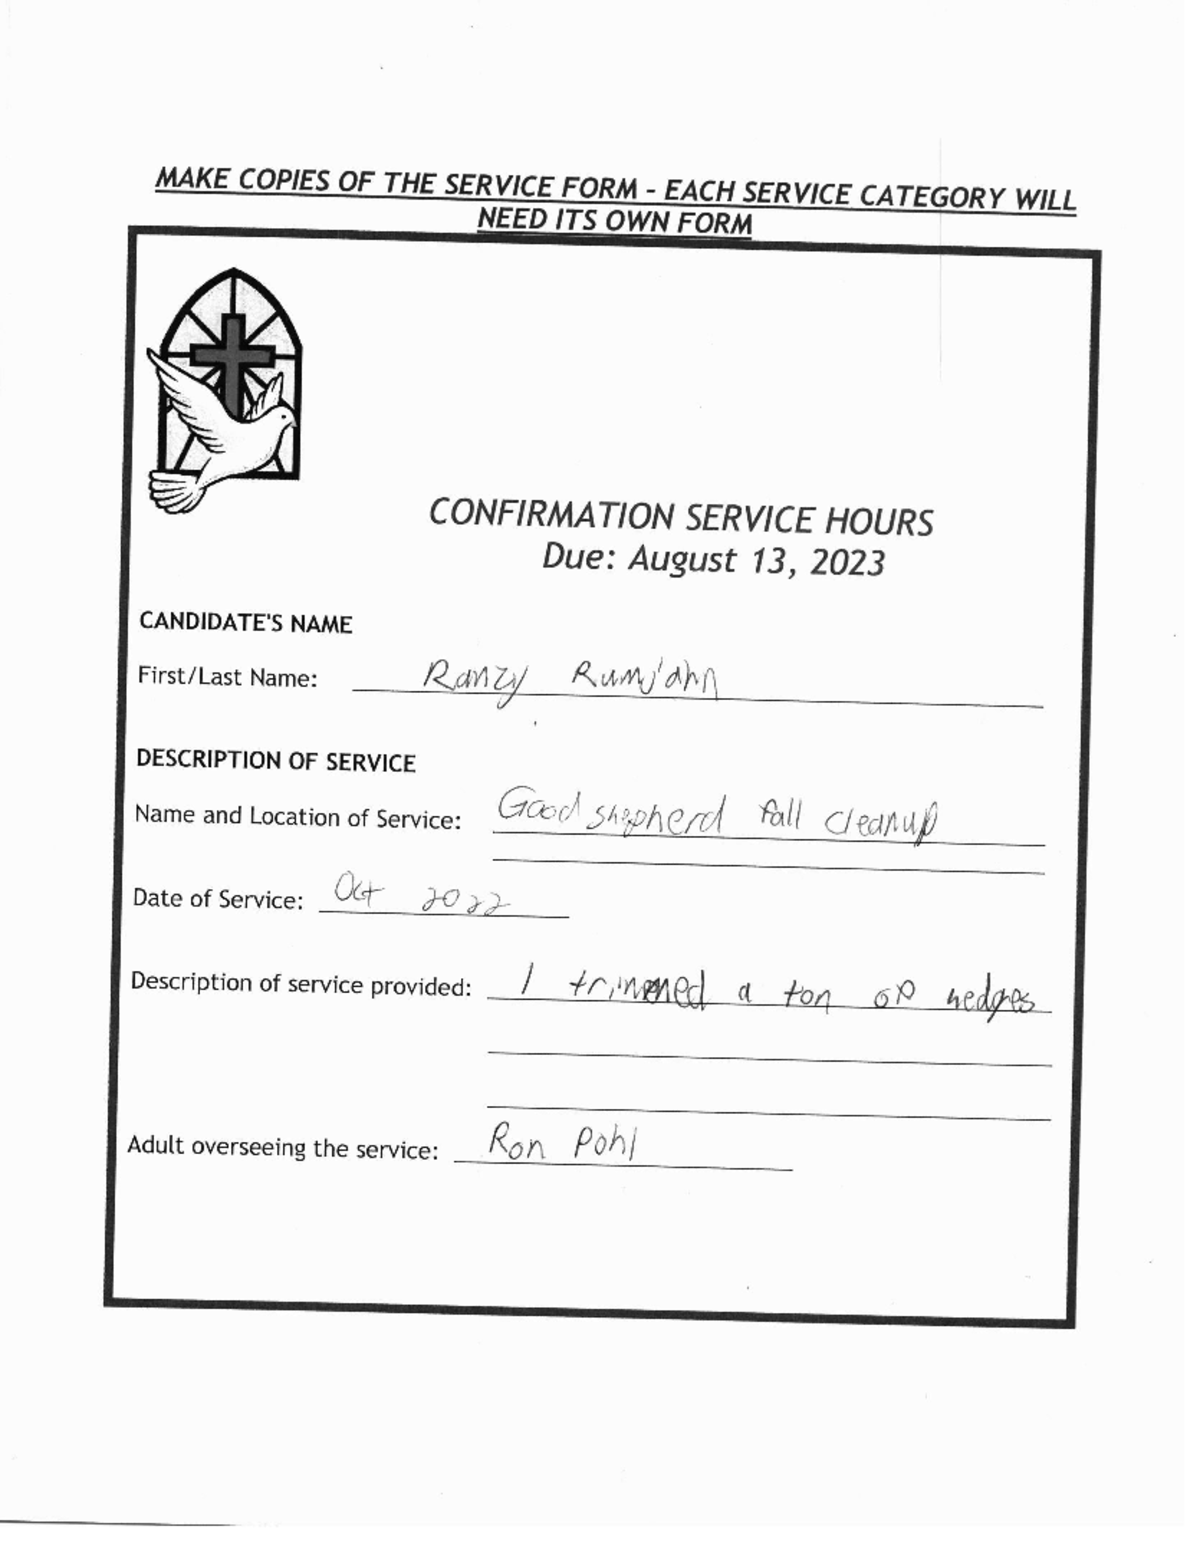 MAKE COPIES OF THE SERVICE FORM - EACH SERVICE CATEGORY WILL
NEED ITS OWN FORM
CONFIRMATION SERVICE HOURS
Due: August 13, 2023
CANDIDATE'S NAME
First/Last Name: Ranzy Rumjahn
DESCRIPTION OF SERVICE
Name and Location of Service: Good shepherd fall cleanup
Date of Service: Oct 2022
Description of service provided: I trimmed a ton of hedges
Adult overseeing the service: Ron Pohl